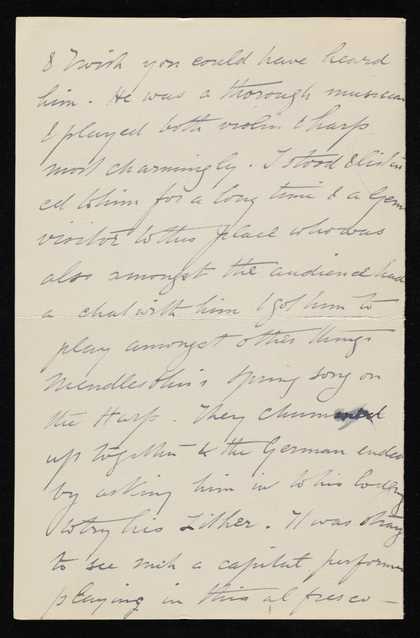 & I wish you could have heard
him. He was a thorough musician
& played both violin & harp
most charmingly. I stood & listen
ed to him for a long time & a Germ
visitor to this place who was
also amongst the audience had
a chat with him & got him to
play amongst other things
Mendlesohn's Spring song on
the Harp. They chummed
up together & the German ended
by asking him in to his lodging
to try his Zither. It was strang
to see such a capital performer
playing in this al fresco —